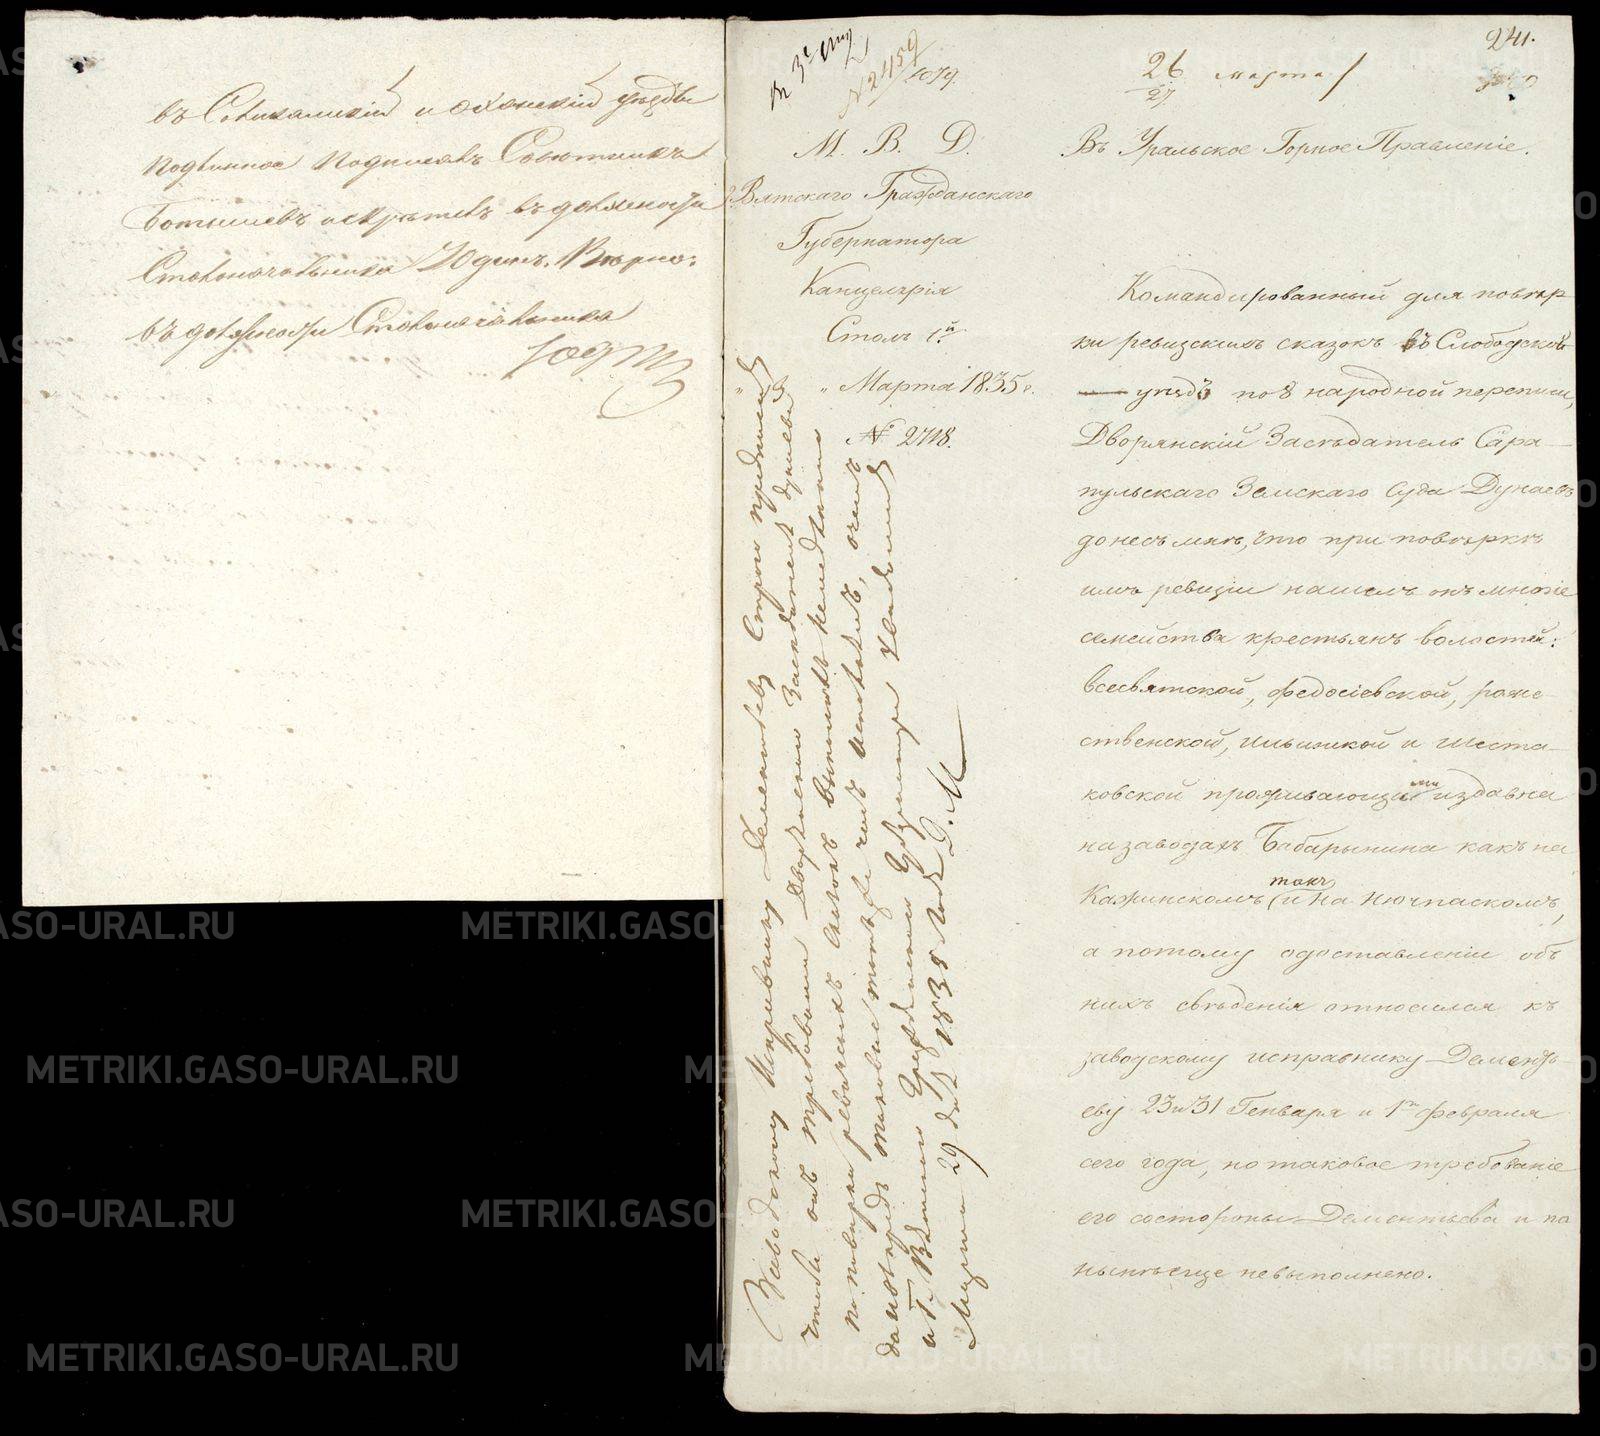 въ Соликамскій и Оханскій уѣзды
подлинное подписалъ Совѣтникъ
скрѣпилъ въ должности
Столоначальника Юдинъ. Вѣрно:
въ должности Столоначальника
Юдин
241.
№ 2459
1079.
26 марта
27
М. В. Д.
Вятскаго Гражданскаго
Губернатора
Канцелярія
Столъ 1й
" " Марта 1835 г.
№ 2718.
Въ Уральское Горное Правленіе.
Командированный для повѣр
ки ревизскихъ сказокъ въ Слободской
уѣздъ по 8 народной переписи,
Дворянскій Засѣдатель Сара-
пульскаго Земскаго Суда Дунаевъ
донесъ мнѣ, что при повѣркѣ
имъ ревизіи нашелъ онъ многіе
семейства крестьянъ волостей:
всесвятской, федосіевской, роже-
ственской, ильинской и шеста-
ковской проживающими издавна
на заводахъ Бабарыкина какъ на
Кажинскомъ такъ и на Нючпаскомъ,
а потому о доставленіи объ
нихъ свѣденія относился къ
заводскому исправнику Дементь-
еву 23 и 31 Генваря и 1го февраля
сего года, но таковое требованіе
его со стороны Дементьева и по
нынѣ еще не выполнено.
Заводскому Исправнику Дементьеву строго предписать
чтобы онъ требованіи Дворянскаго Засѣдателя Дунаева
по повѣркѣ ревизскихъ сказокъ выполнилъ немедленно
и впредь таковые тотъ же часъ исполнялъ, о чемъ
и Г. Вятскаго Гражданскаго Губернатора увѣдомить
Марта 29 дня 1835 года Д. М.